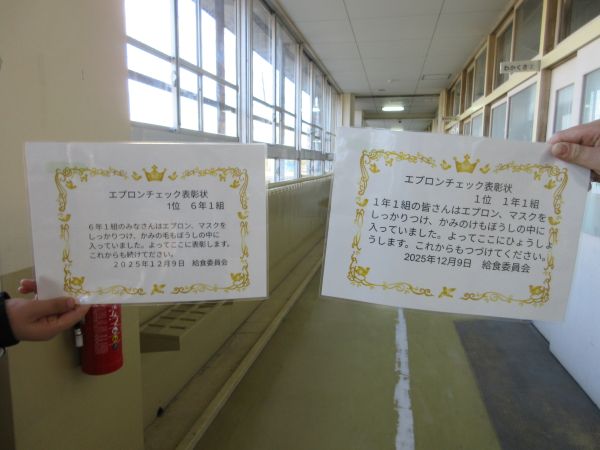 わかくさ
エプロンチェック表彰状
1位 6年1組
6年1組のみなさんはエプロン、マスクを
しっかりつけ、かみの毛もぼうしの中に
入っていました。よってここに表彰します。
これからも続けてください。
2025年12月9日 給食委員会
エプロンチェック表彰状
1位 1年1組
1年1組の皆さんはエプロン、マスクを
しっかりつけ、かみのけもぼうしの中に
入っていました。よってここにひょうしょ
うします。これからもつづけてください。
2025年12月9日 給食委員会